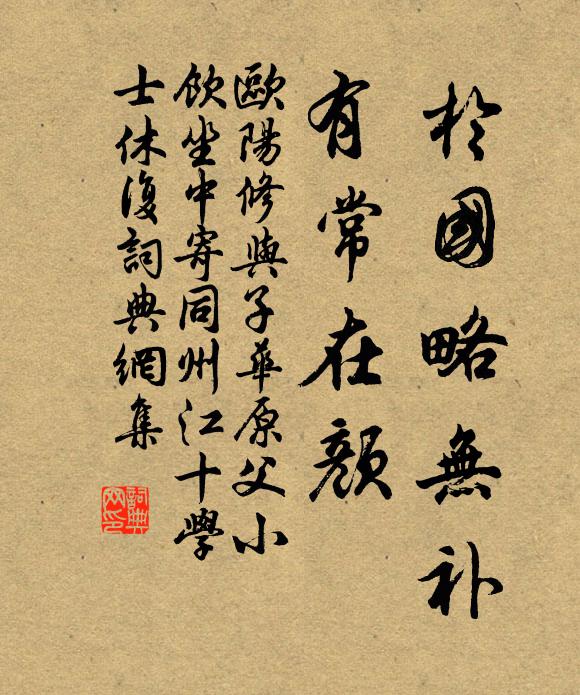 於國略無补
有常在顏
歐陽修與子華原父小
飲坐中寄同州江十學
士休復詞典網集
詞典
网印